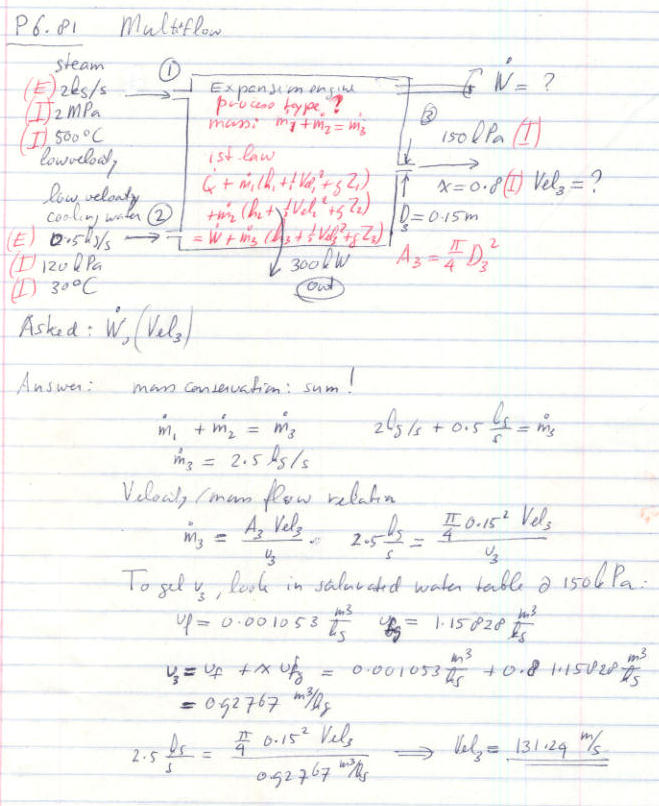 P6.81 Multiflow
steam
(E) 2kg/s
(I) 2 MPa
(I) 500°C
low velocity
①
Expansion engine
process type ?
mass: ṁ1 + ṁ2 = ṁ3
1st law
Q̇ + ṁ1(h1 + ½Vel1² + gZ1)
+ ṁ2(h2 + ½Vel2² + gZ2)
= Ẇ + ṁ3(h3 + ½Vel3² + gZ3)
Ẇ = ?
③
150 kPa (I)
x = 0.8 (I) Vel3 = ?
D3 = 0.15m
A3 = π/4 D3²
low velocity
cooling water ②
(E) 0.5kg/s
(I) 120 kPa
(I) 30°C
300kW
out
Asked: Ẇ, (Vel3)
Answer: mass conservation: sum!
ṁ1 + ṁ2 = ṁ3 2kg/s + 0.5 kg/s = ṁ3
ṁ3 = 2.5 kg/s
Velocity/mass flow relation
ṁ3 = A3 Vel3 / v3 . 2.5 kg/s = π/4 0.15² Vel3 / v3
To get v3, look in saturated water table @ 150kPa:
vf = 0.001053 m³/kg vfg = 1.15828 m³/kg
v3 = vf + x vfg = 0.001053 m³/kg + 0.8 1.15828 m³/kg
= 0.92767 m³/kg
2.5 kg/s = π/4 0.15² Vel3 / 0.92767 m³/kg ⟹ Vel3 = 131.24 m/s